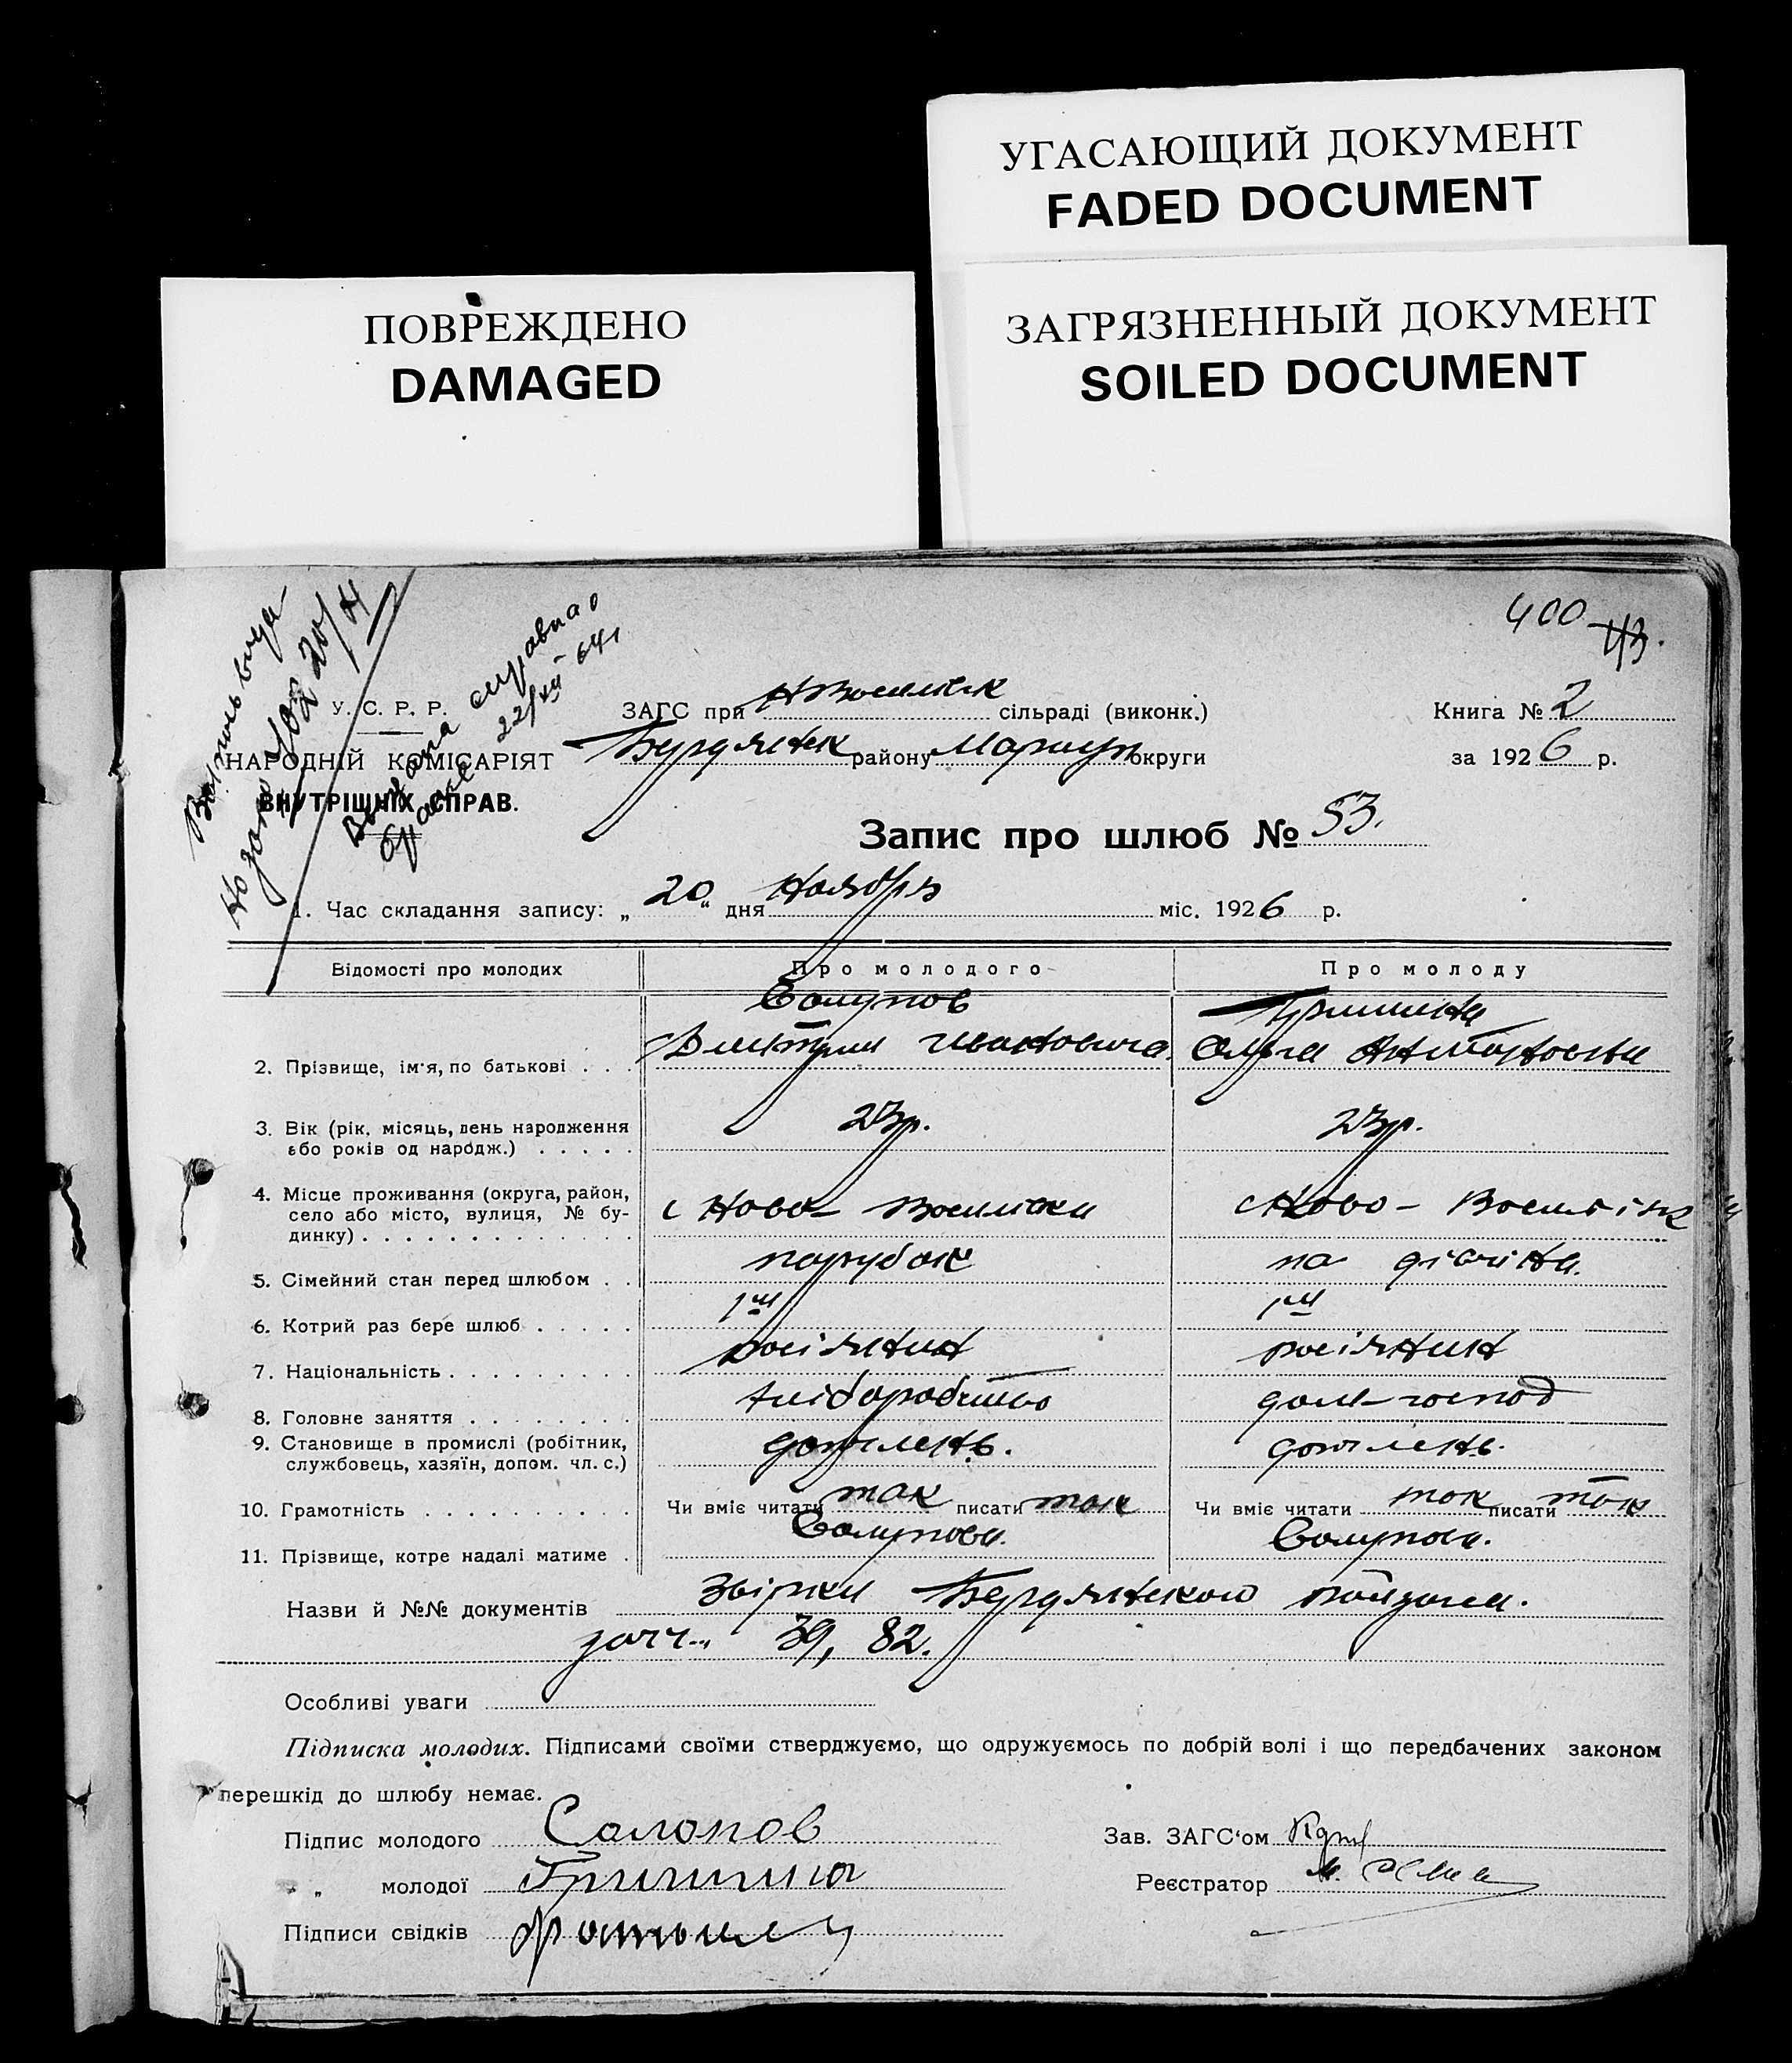 УГАСАЮЩИЙ ДОКУМЕНТ
FADED DOCUMENT
ПОВРЕЖДЕНО
DAMAGED
ЗАГРЯЗНЕННЫЙ ДОКУМЕНТ
SOILED DOCUMENT
400 43.
Видана справка о
браке 22/XII-64г
У. С. Р. Р.
НАРОДНІЙ КОМІСАРІЯТ
ВНУТРІШНІХ СПРАВ.
ЗАГС при сільраді (виконк.)
Бердянськ району Маріуп округи
Книга № 2
за 1926 р.
Запис про шлюб № 53.
1. Час складання запису: „20“ дня Ноября міс. 1926 р.
Відомості про молодих Про молодого Про молоду
2. Прізвище, ім'я, по батькові . . . Салупов Дмитрий Ивановича. Гришина Ольга Антоновна
3. Вік (рік, місяць, день народження або років од народж.) . . . . . 23р. 23р.
4. Місце проживання (округа, район, село або місто, вулиця, № будинку) . . . . . . . . . . . . . с Ново- с Ново-
5. Сімейний стан перед шлюбом . . парубок дівчина.
6. Котрий раз бере шлюб . . . . . 1ий 1ий
7. Національність . . . . . . . . . росіянин росіянин
8. Головне заняття . . . . . . . . хліборобство дом-господ
9. Становище в промислі (робітник, службовець, хазяїн, допом. чл. с.)
10. Грамотність . . . . . . . . . . Чи вміє читати так писати так Чи вміє читати так писати так
11. Прізвище, котре надалі матиме . Салупова. Салупова.
Назви й №№ документів Бердянского
39, 82.
Особливі уваги
Підписка молодих. Підписами своїми стверджуємо, що одружуємось по добрій волі і що передбачених законом
перешкід до шлюбу немає.
Підпис молодого Салопов
„ „ молодої Гришина
Підписи свідків
Зав. ЗАГС'ом
Реєстратор